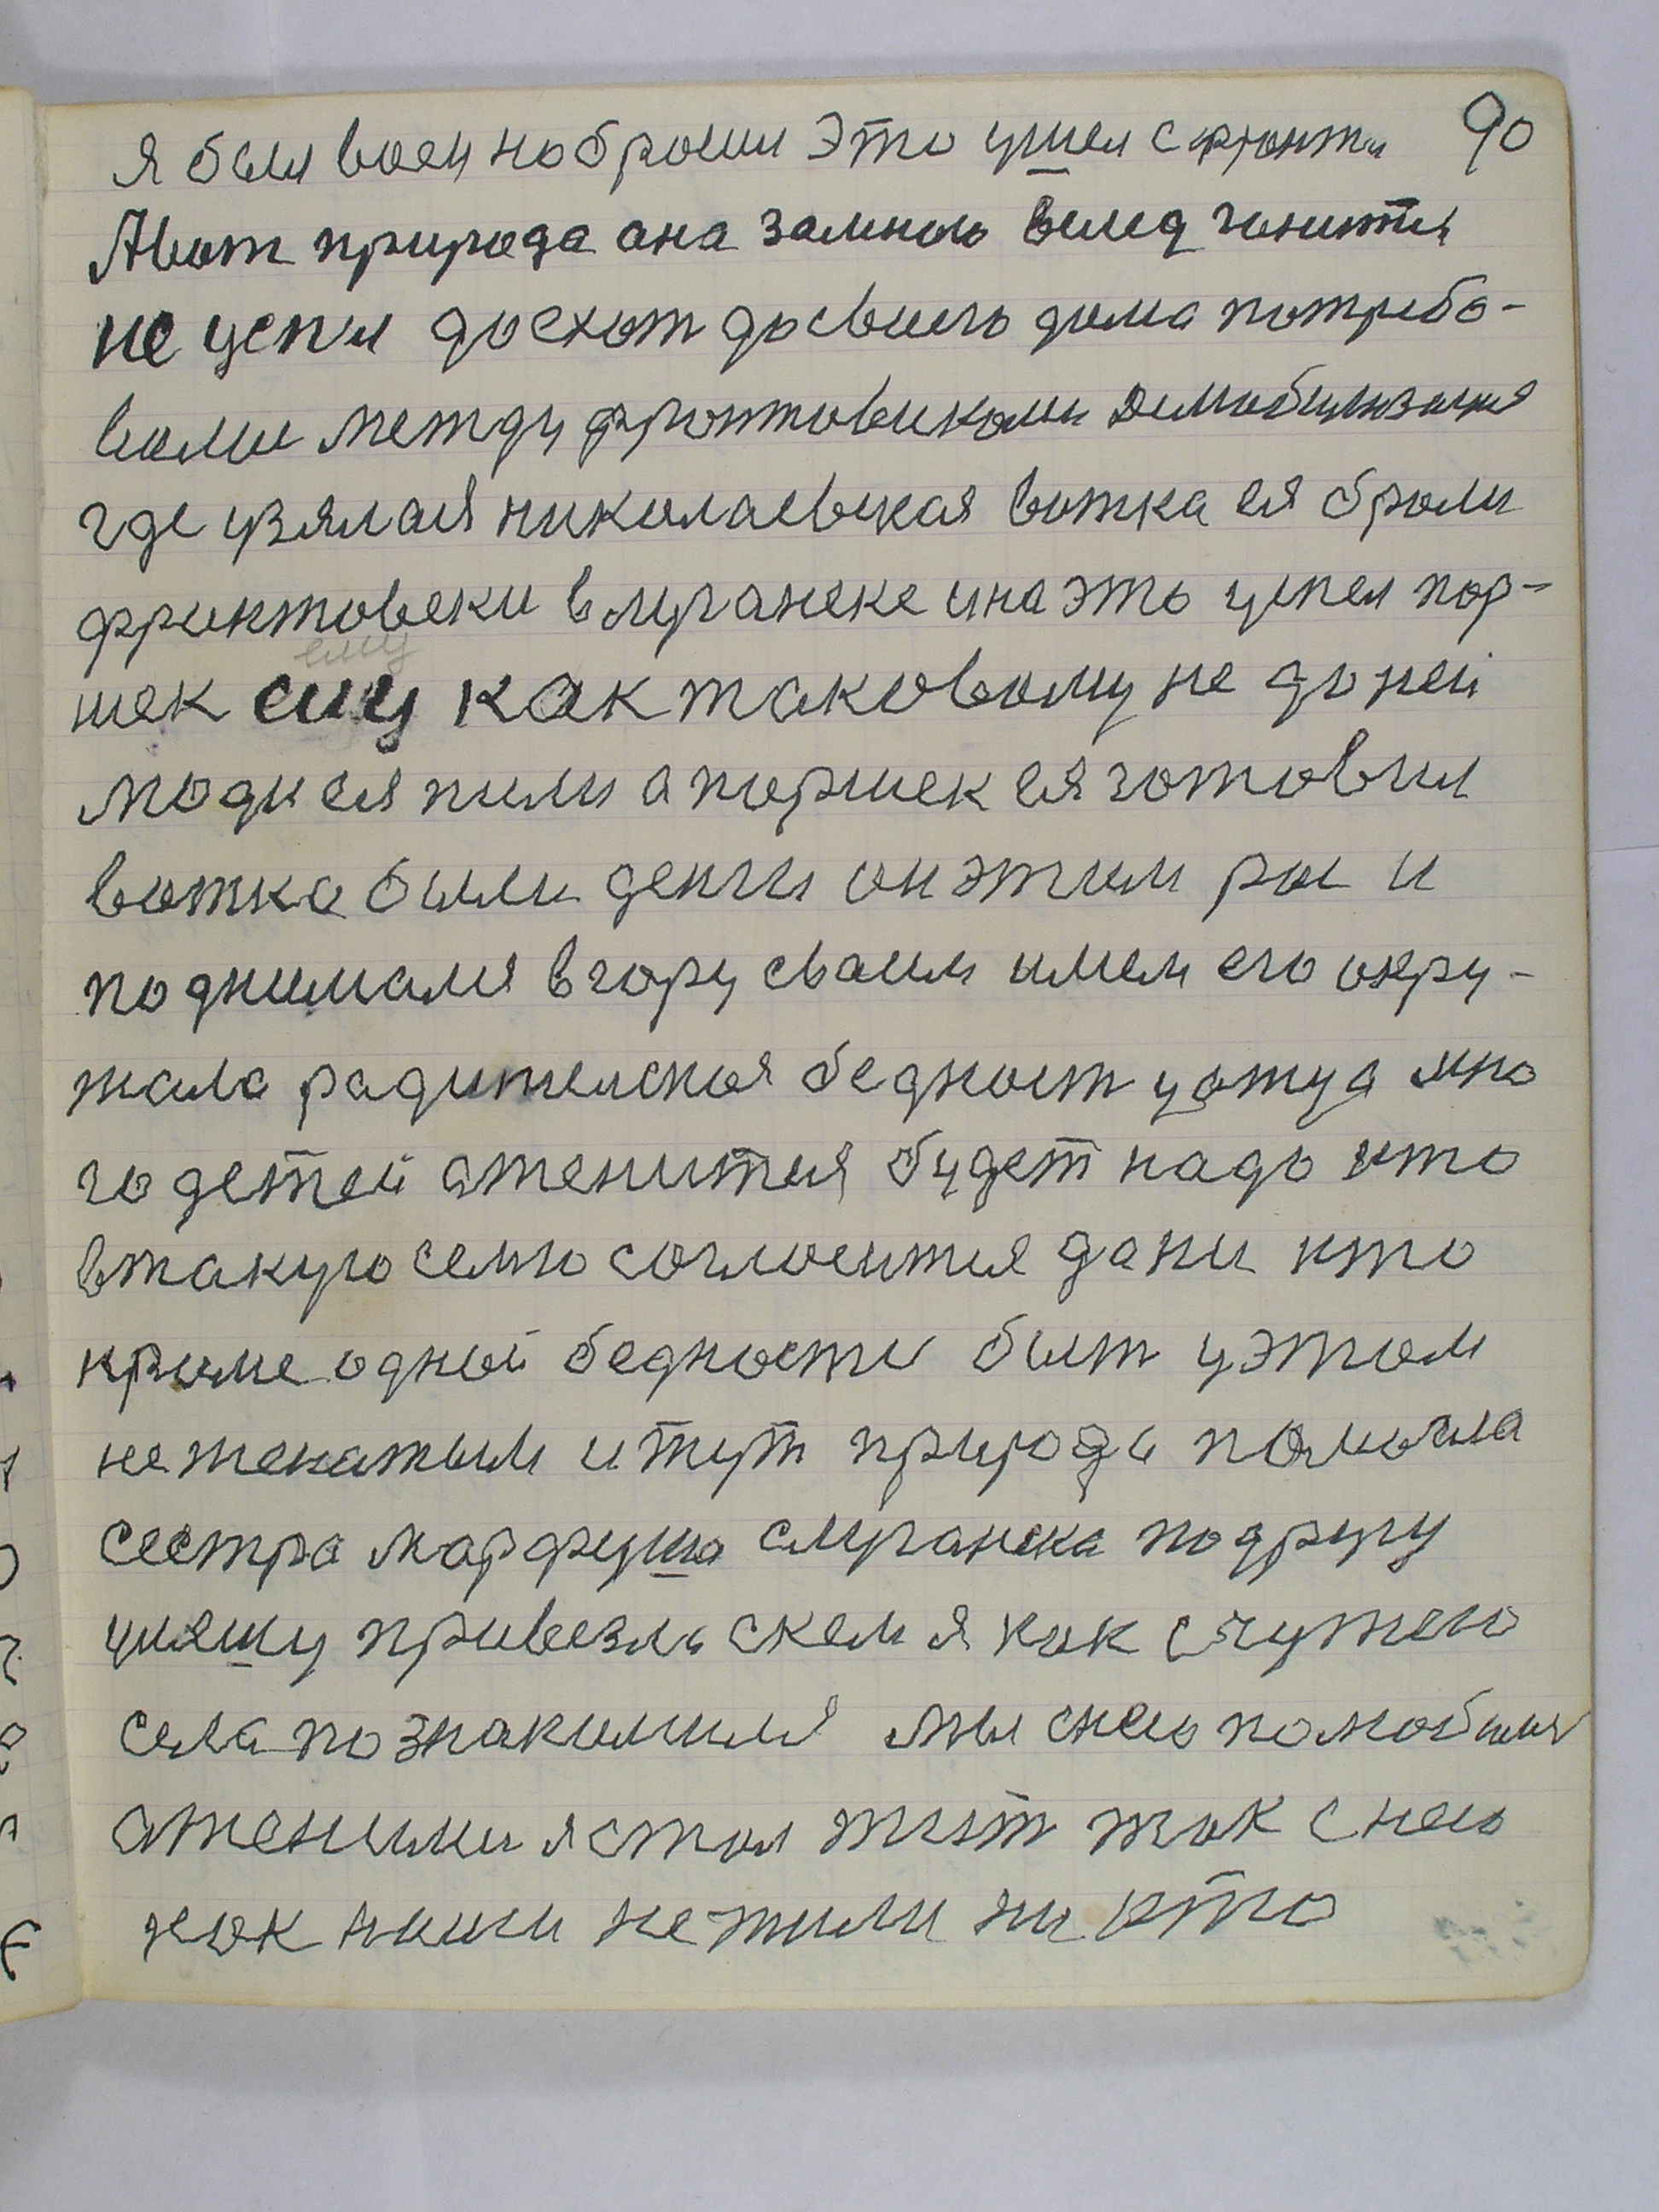 90
я был воен но бросил это ушел с фронта
А вот природа она замною вслед гонится
не успел доехат до своего дома потребо-
вали между фронтовиками демобилизация
где узялася николаевская вотка ея брали
фронтовеки в луганске и на эта успел пор-
шек ему ему как таковому не до ней
люди ея пили а поршек ея готовил
вотка были денги он этим рос и
поднимался в гору сваим имем его окру-
жала радителская бедност у отца мно
го детей а женится будет надо кто
в такую семю согласится да ни кто
кроме одной бедности быт у этом
не женатым и тут природа помогла
сестра марфуша с луганска подругу
уляшу привезла с кем я как с чужею
села познакомился мы с нею полюбилис
а женился я стал жит так с нею
как наши не жили ни кто